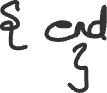 { end
}